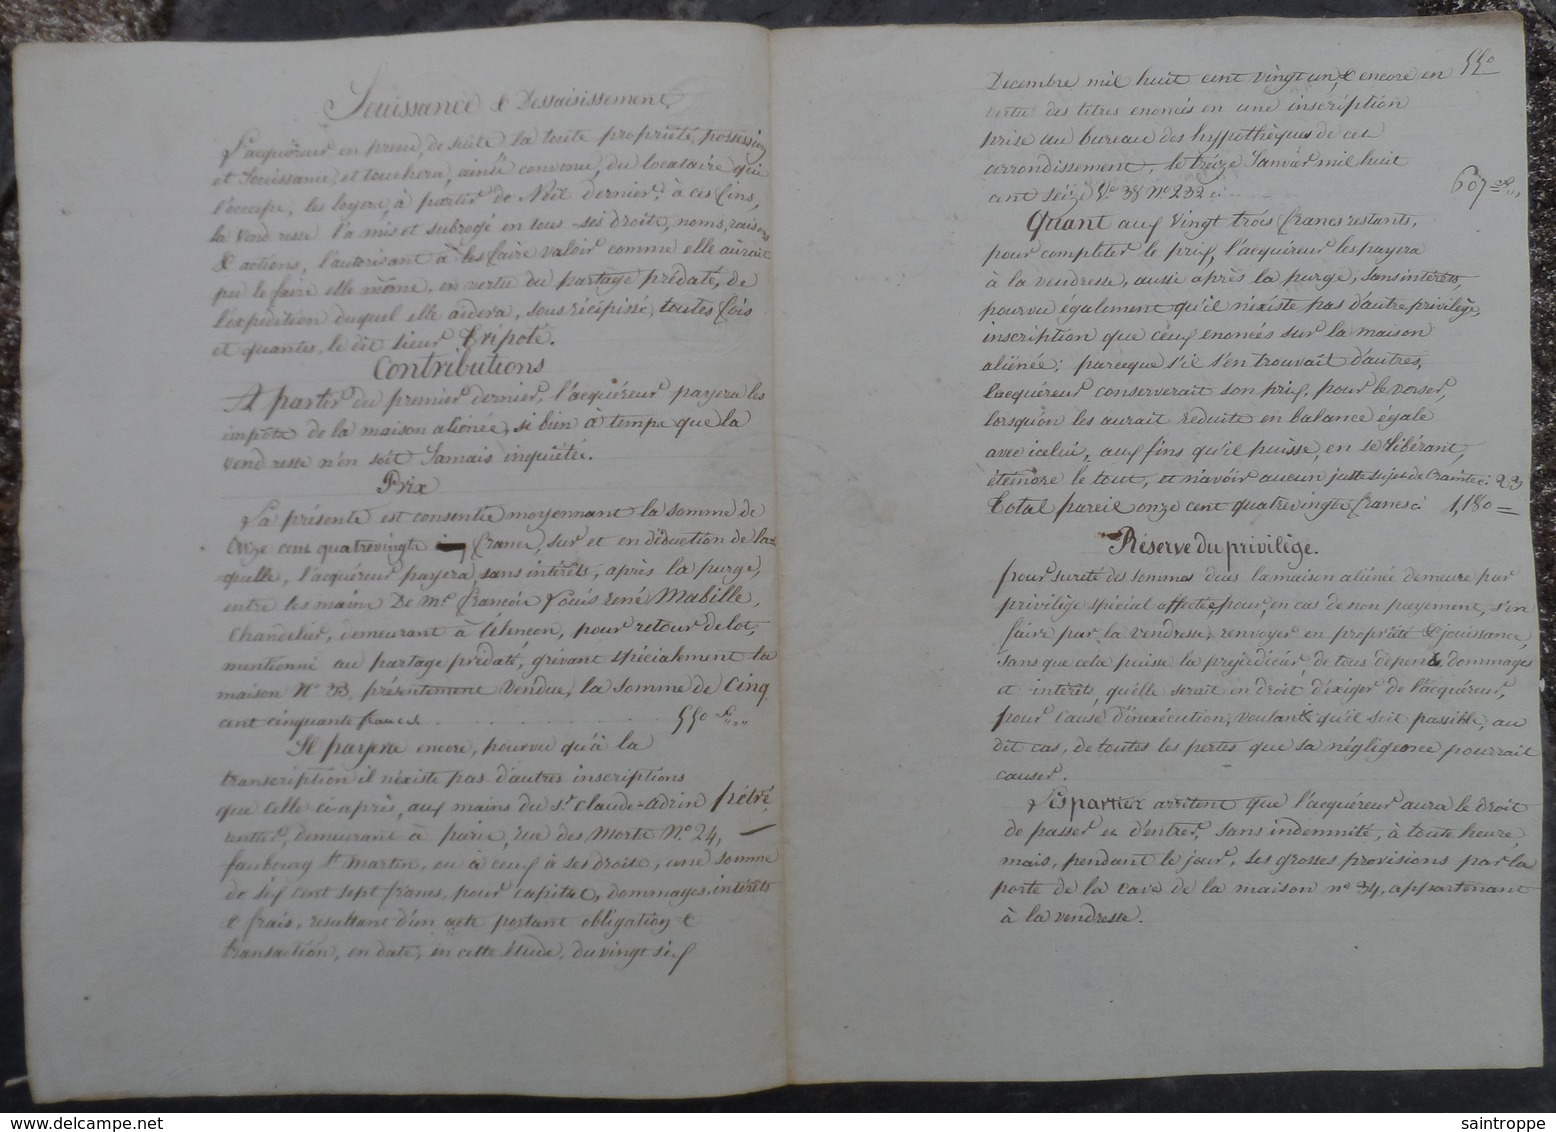 Jouissance & Dessaisissement,
L'acquéreur en prend, de suite la toute propriété, possession
et Jouissance, et touchera, ainsi convenu, du locataire qui
l'occupe, les loyers, à partir de Noël dernier; à ces fins,
la vend resse l'a mis et subrogé en tous ses droits, noms, raisons
& actions, l'autorisant à les faire valoir comme elle aurait
pu le faire elle même, en vertu du partage prédaté, de
l'expédition duquel elle aidera, sous récépissé, toutes fois
et quantes, le dit sieur Tripoté.
Contributions
A partir du premier dernier, l'acquéreur payera les
impôts de la maison aliénée, si bien à temps que la
vend resse n'en soit Jamais inquiétée.
Prix
La présente est consentie moyennant la somme de
Onze cent quatrevingts francs, sur et en déduction de la-
quelle, l'acquéreur payera, sans intérêts, après la purge,
entre les mains De Mr. françois Louis rené Mabille,
Chandelier, demeurant à alençon, pour retour de lot,
mentionné au partage prédaté, grévant spécialement la
maison No. 33, présentement vendue, la somme de Cinq
cent cinquante francs . . . . . . . . . . 550 fr „ „
Il payera encore, pourvu qu'à la
transcription il n'existe pas d'autres inscriptions
que celle ci après, aux mains du sr. Claude-adrin pétré,
rentier, demeurant à paris, rue des Morts No. 24,
faubourg st. Martin, ou à ceux à ses droits, une somme
de six cent sept francs, pour capital, dommages-intérêts
& frais, résultant d'un acte portant obligation &
transaction, en date, en cette étude, du vingt six
550
Decembre mil huit cent vingt un, & encore en
vertu des titres enoncés en une inscription
prise au bureau des hypothèques de cet
arrondissement, le treize Janvier mil huit
cent seize Vo. 38 No. 232 ci 607 fr „
Quant aux vingt trois francs restants,
pour completer le prix, l'acquéreur les payera
à la vendresse, aussi après la purge, sans intérêts,
pourvu également qu'il n'existe pas d'autre privilège,
inscription que ceux enoncés sur la maison
aliénée; parceque s'il s'en trouvait d'autres,
l'acquéreur conserverait son prix, pour le verser,
lorsqu'on les aurait reduits en balance égale
avec icelui, aux fins qu'il puisse, en se libérant,
éteindre le tout, et n'avoir aucun juste sujet de Crainte ci 23
Total pareil onze cent quatrevingts francs ci 1,180 =
Réserve du privilège.
pour sureté des sommes dues la maison aliénée demeure par
privilège spécial affectée, pour, en cas de non payement, s'en
faire par la vendresse, renvoyer en propriété & jouissance,
sans que cela puisse la préjudicier, de tous dépens, dommages
et intérêts, qu'elle serait en droit d'éxiger de l'acquéreur,
pour cause d'inexécution, voulant qu'il soit passible, au
dit cas, de toutes les pertes que sa négligeance pourrait
causer.
Les parties arrêtent que l'acquéreur aura le droit
de passer et d'entrer, sans indemnité, à toute heure,
mais, pendant le jour, ses grosses provisions par la
porte de la cave de la maison no 34, appartenant
à la vendresse.
saintroppe